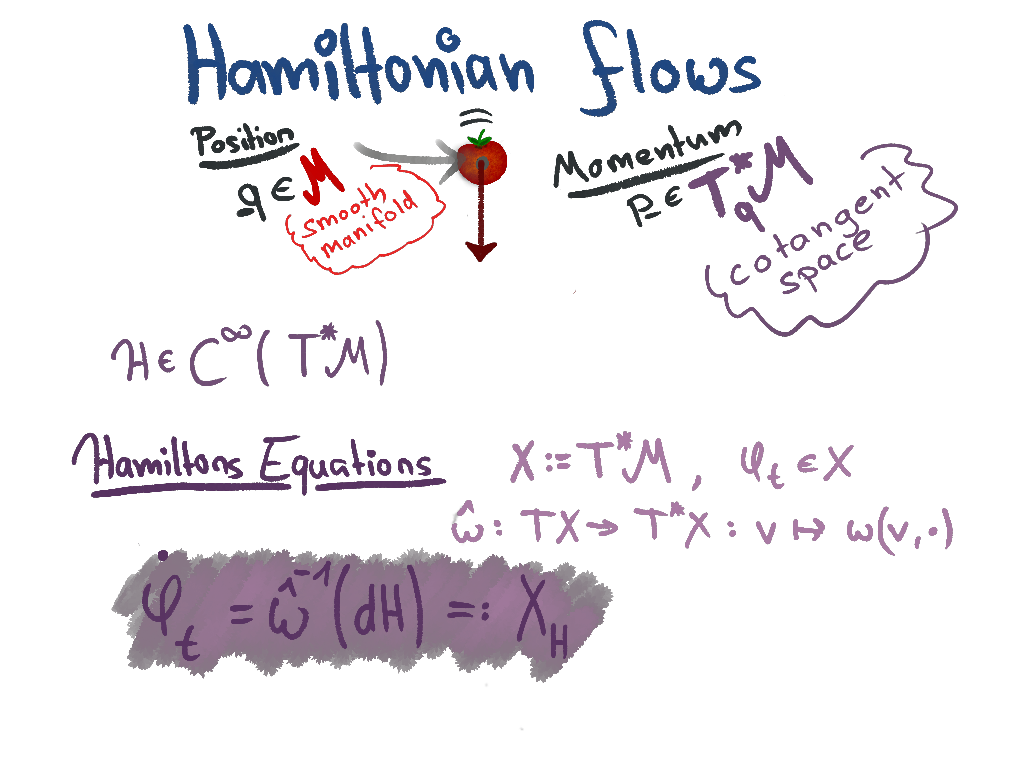 Hamiltonian flows
Position
q ∈ M
smooth
manifold
Momentum
p ∈ T*_q M
cotangent
space
H ∈ C^∞(T*M)
Hamiltons Equations
X := T*M, φ_t ∈ X
ω̂ : TX → T*X : v ↦ ω(v, ·)
φ̇_t = ω̂^-1(dH) =: X_H